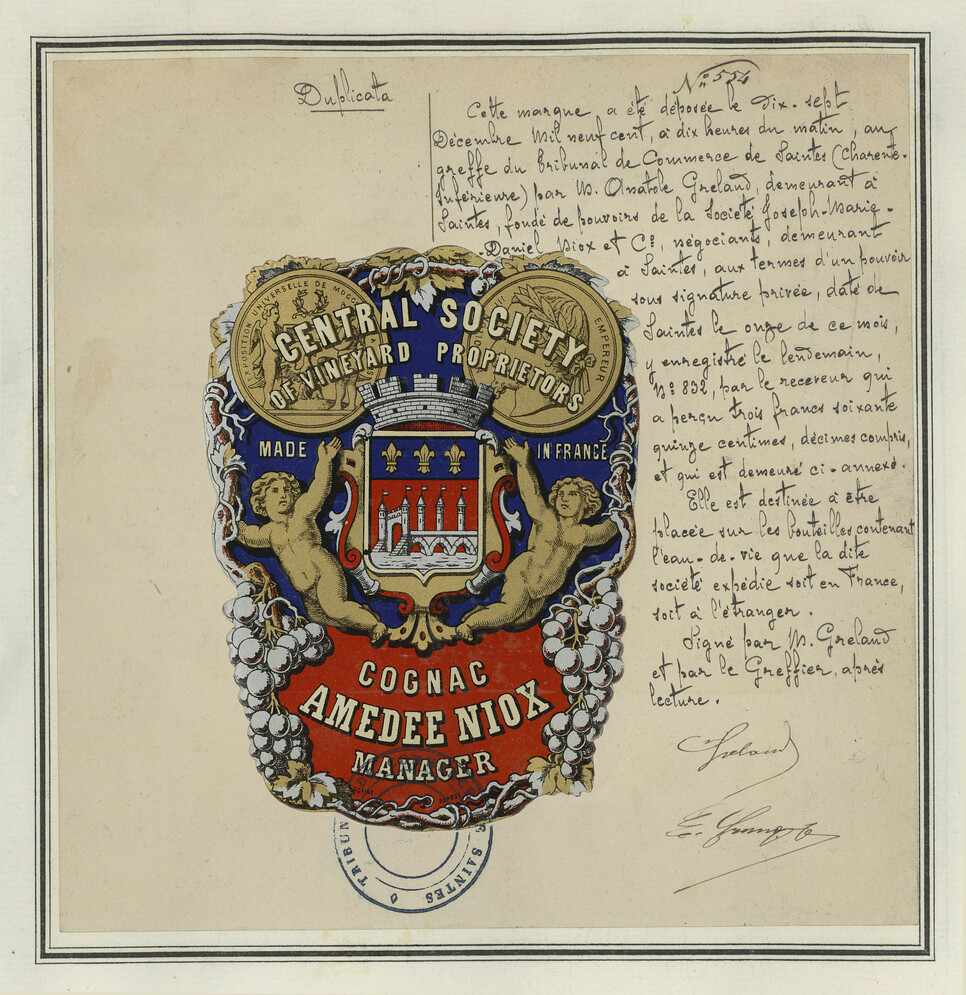 Duplicata
N° 554
Cette marque a été déposée le dix-sept
Décembre Mil neuf cent, à dix heures du matin, au
greffe du Tribunal de Commerce de Saintes (Charente-
Inférieure) par M. Anatole Greland, demeurant à
Saintes, fondé de pouvoirs de la Société Joseph-Marie-
Daniel Niox et Cie, négociants, demeurant
à Saintes, aux termes d'un pouvoir
sous signature privée, daté de
Saintes le onze de ce mois,
y enregistré le lendemain,
N° 832, par le receveur qui
a perçu trois francs soixante
quinze centimes, décimes compris,
et qui est demeuré ci-annexé.
Elle est destinée à être
placée sur les bouteilles contenant
l'eau-de-vie que la dite
société expédie soit en France,
soit à l'étranger.
Signé par M. Greland
et par le Greffier, après
lecture.
Greland
EXPOSITION UNIVERSELLE DE
EMPEREUR
CENTRAL SOCIETY
OF VINEYARD PROPRIETORS
MADE IN FRANCE
COGNAC
AMEDEE NIOX
MANAGER
TRIBUN
E SAINTES